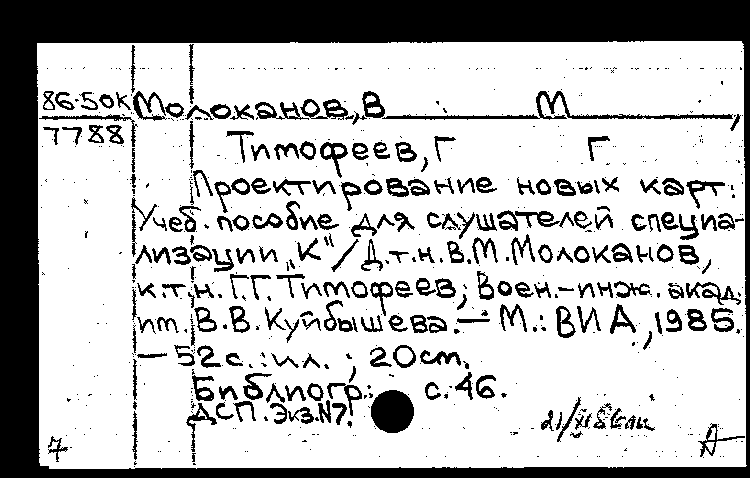 86-50К Молоканов, В М ,
7788
Тимофеев, Г Г
Проектирование новых карт:
Учеб. пособие для слушателей специа-
лизации „К"/Д.т.н. В.М. Молоканов,
к.т.н. Г.Г. Тимофеев; Воен.-инж. акад.
им. В.В. Куйбышева. — М.: ВИА, 1985.
— 52 с.: ил. ; 20 см.
Библиогр.: с. 46.
ДСП. Экз. №7.
7